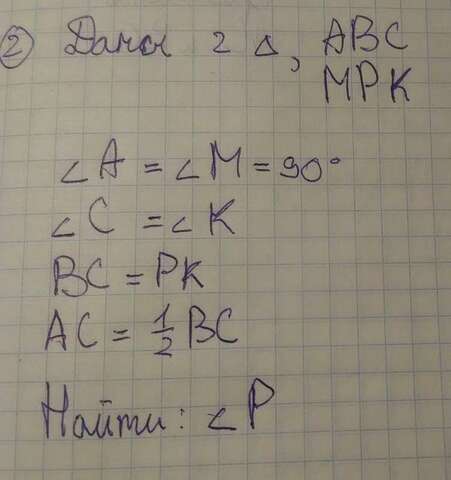 ② Даны 2 Δ, ABC
MPK
∠A = ∠M = 90°
∠C = ∠K
BC = PK
AC = 1/2 BC
Найти: ∠P